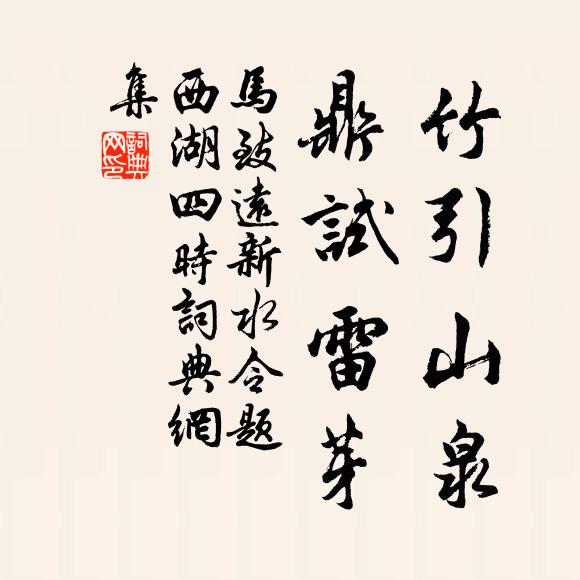 竹引山泉
鼎試雷芽
馬致遠新水令題
西湖四時詞典網
集
詞典
网印